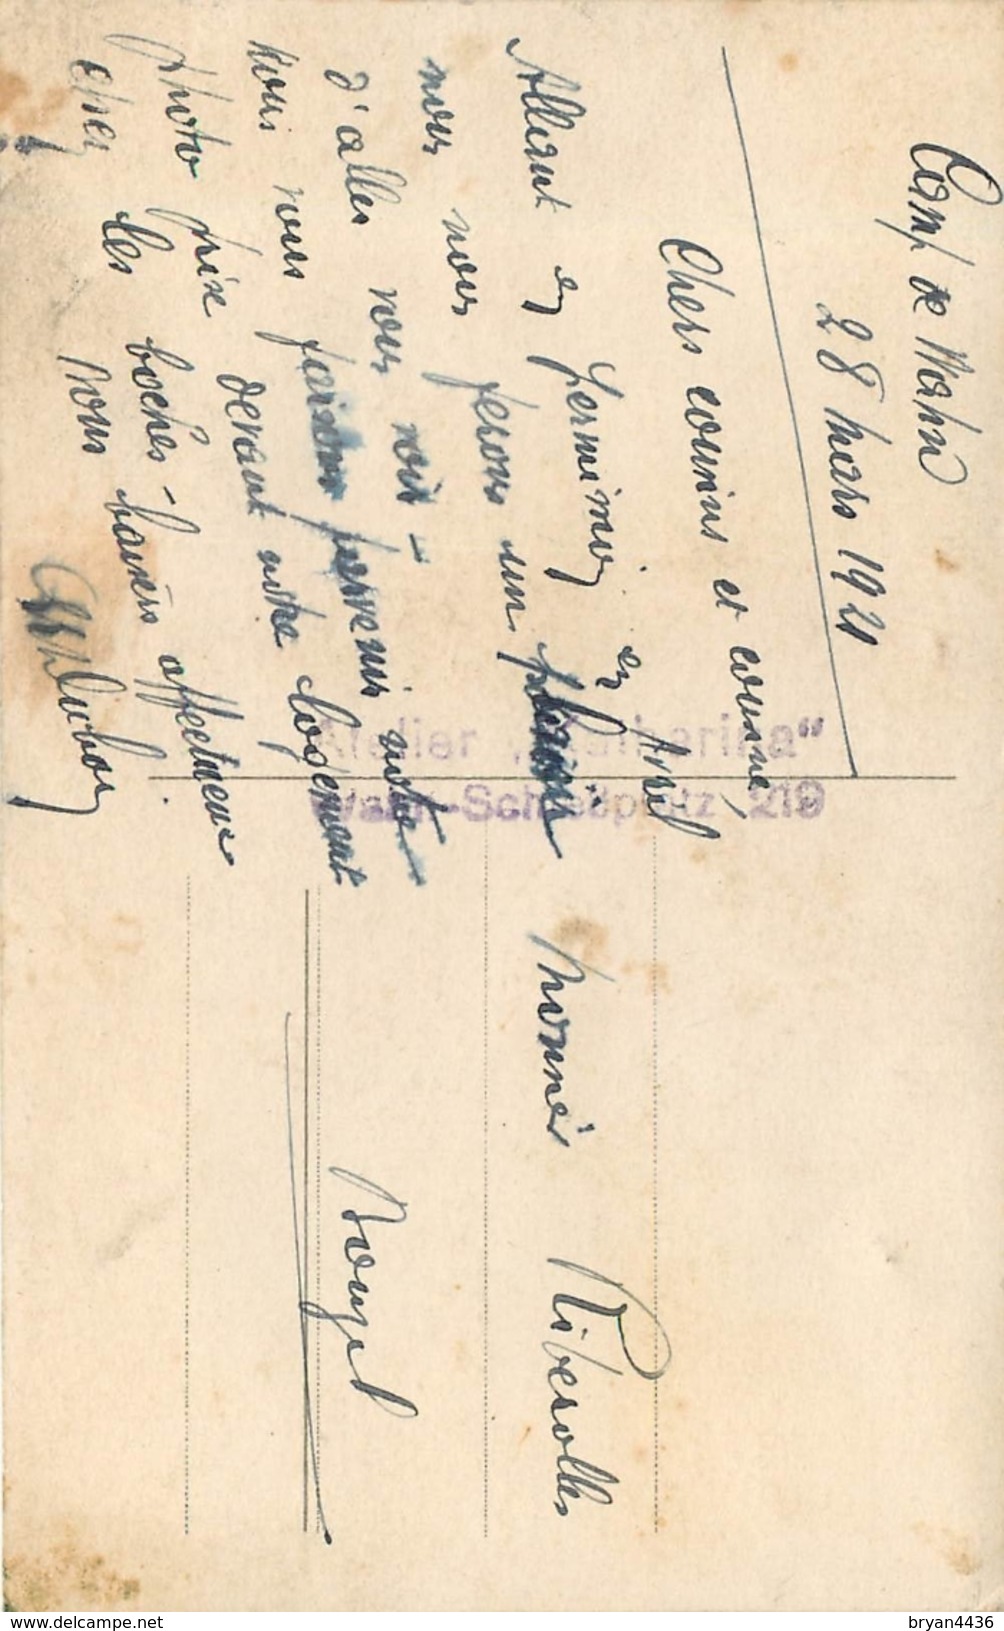 Camp de Wahn
28 Mars 1921
Chers cousins et cousine,
Allant en permission en Avril
nous nous ferons un plaisir
d'aller vous voir -
Nous vous faisons parvenir notre
photo prise devant notre logement
chez les boches - baisers affectueux
Nous
Dubou
Monnier Ribesolles
Rouzel
Atelier „Katharina“
Wahn-Schießplatz 219
bryan4436